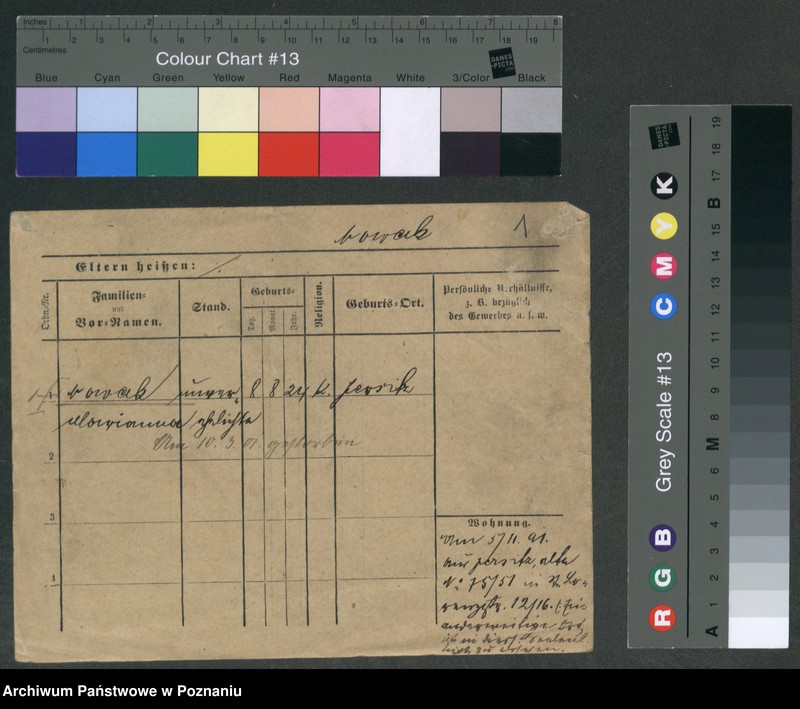 Inches 1 2 3 4 5 6 7 8
Centimetres 1 2 3 4 5 6 7 8 9 10 11 12 13 14 15 16 17 18 19
Colour Chart #13
DANES
-PICTA
.COM
Blue Cyan Green Yellow Red Magenta White 3/Color Black
Nowak 1
Eltern heißen:
Ordn.-Nr.
Familien-
und
Vor-Namen.
Stand.
Geburts-
Tag. Monat. Jahr.
Religion.
Geburts-Ort.
Persönliche Verhältnisse,
z. B. bezüglich
des Gewerbes u. s. w.
1 Nowak unver, 8 8 24 k. Jersitz
Marianna ehelichte
Am 10. 3. 01. gestorben
2
3
4
Wohnung.
Am 5/11. 91.
aus Jersitz, alte
No 75/51 in
12/16.
anderweitige
R G B C M Y K
Grey Scale #13
A 1 2 3 4 5 6 M 8 9 10 11 12 13 14 15 B 17 18 19
DANES
-PICTA
.COM
Archiwum Państwowe w Poznaniu